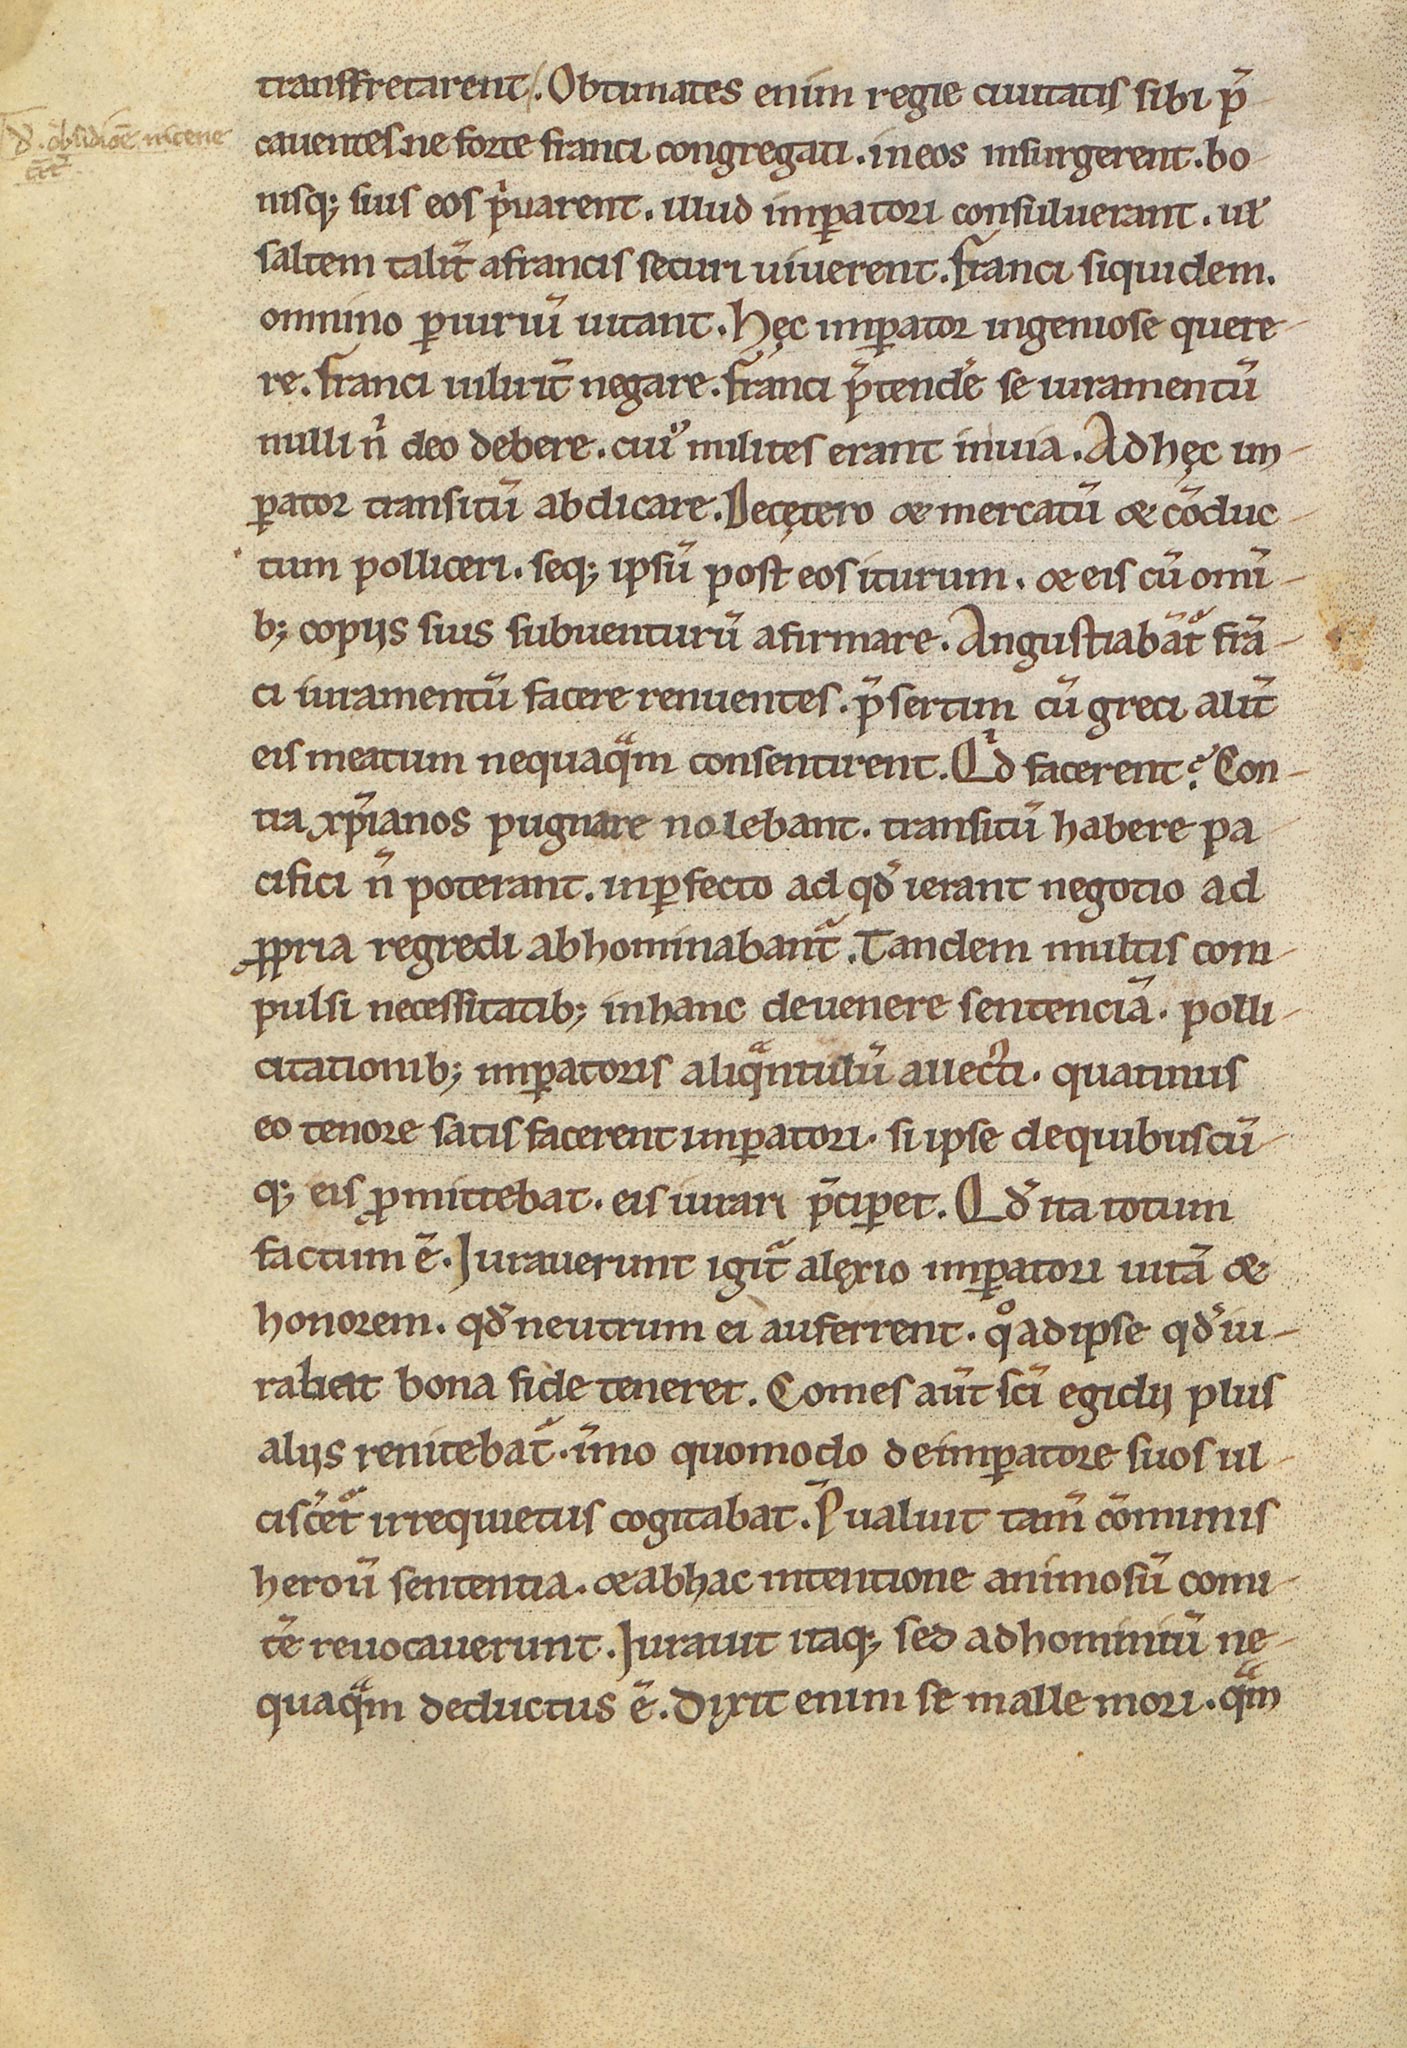 d'. obsidiōe nicene
ciť.
transfretarent. Obtimates enim regie ciuitatis sibi p̄
cauentes. ne forte franci congregati. in eos insurgerent. bo-
nisq; suis eos pͥuarent. illud imꝑatori consuluerant. uł
saltem talit̄ a francis securi uiuerent. franci siquidem.
omnino ꝑiuriū uitant. Hęc imꝑator ingeniose quere-
re. franci uiluit̄ negare. franci p̄tendē se iuramentū
nulli nͥ deo debere. cuiꝰ milites erant in uia. Ad hęc im-
ꝑator transitū abdicare. De cętero & mercatū & cōduc-
tum polliceri. seq; ipsū post eos iturum. & eis cū omī-
b; copijs suis subuenturū afirmare. Angustiabāt᷑ frā-
ci iuramentū facere renuentes. p̄sertim cū greci alit̄
eis meatum nequaqͣm consentirent. Qͥd facerent? Con-
tra xp̄ianos pugnare nolebant. transitū habere pa
cifici n̄ poterant. inꝑfecto ad qd̄ ierant negotio ad
ꝓpria regredi abhominabant᷑. Tandem multis com-
pulsi necessitatib; in hanc deuenere sentenciā. polli-
citationib; imꝑatoris aliqͣntulū auecͥti. quatinus
eo tenore satis facerent imꝑatori. si ipse de quibuscū-
q; eis ꝓmittebat. eis iurari p̄ciꝑet. Qd̄ ita totum
factum ē. Iurauerunt igit᷑ alęxio imꝑatori uitā &
honorem. qd̄ neutrum ei auferrent. qͦad ipse qd̄ iu-
rabat bona fide teneret. Comes aūt sc̄i egidij plus
alijs renitebat᷑. īmo quomodo de imꝑatore suos ul-
ciscēt᷑ irrequietus cogitabat. P̄ualuit tam̄ cōmunis
heroū sententia. & ab hac intentione animosū comi-
tē reuocauerunt. Iurauit itaq; sed ad hominiū ne-
quaqͣm deductus ē. Dixit enim se malle mori. qͣm